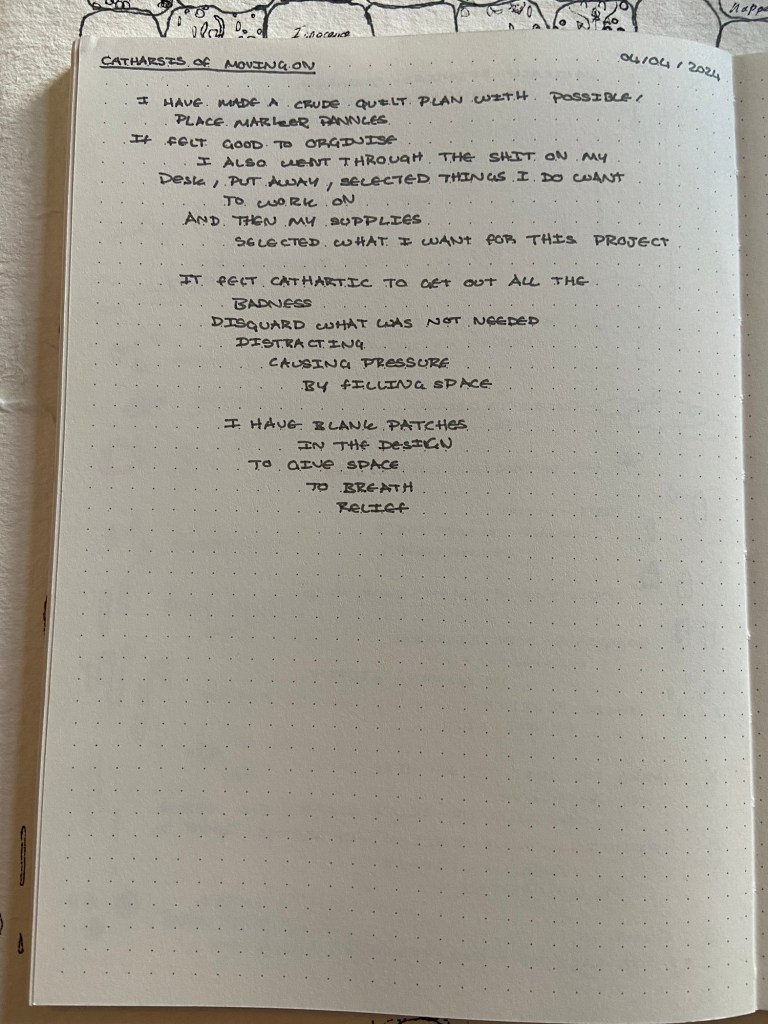 Ignorance
CATHARSIS OF MOVING ON
04/04/2024
I HAVE MADE A CRUDE QUILT PLAN WITH POSSIBLE/
PLACE MARKER PANNLES
IT FELT GOOD TO ORGINISE
I ALSO WENT THROUGH THE SHIT ON MY
DESK, PUT AWAY, SELECTED THINGS I DO WANT
TO WORK ON
AND THEN MY SUPPLIES
SELECTED WHAT I WANT FOR THIS PROJECT
IT FELT CATHARTIC TO GET OUT ALL THE
BADNESS
DISGUARD WHAT WAS NOT NEEDED
DISTRACTING
CAUSING PRESSURE
BY FILLING SPACE
I HAVE BLANK PATCHES
IN THE DESIGN
TO GIVE SPACE
TO BREATH
RELIEF